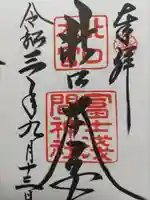 奉拝
北口本宮
冨士淺間神社
令和三年九月十三日